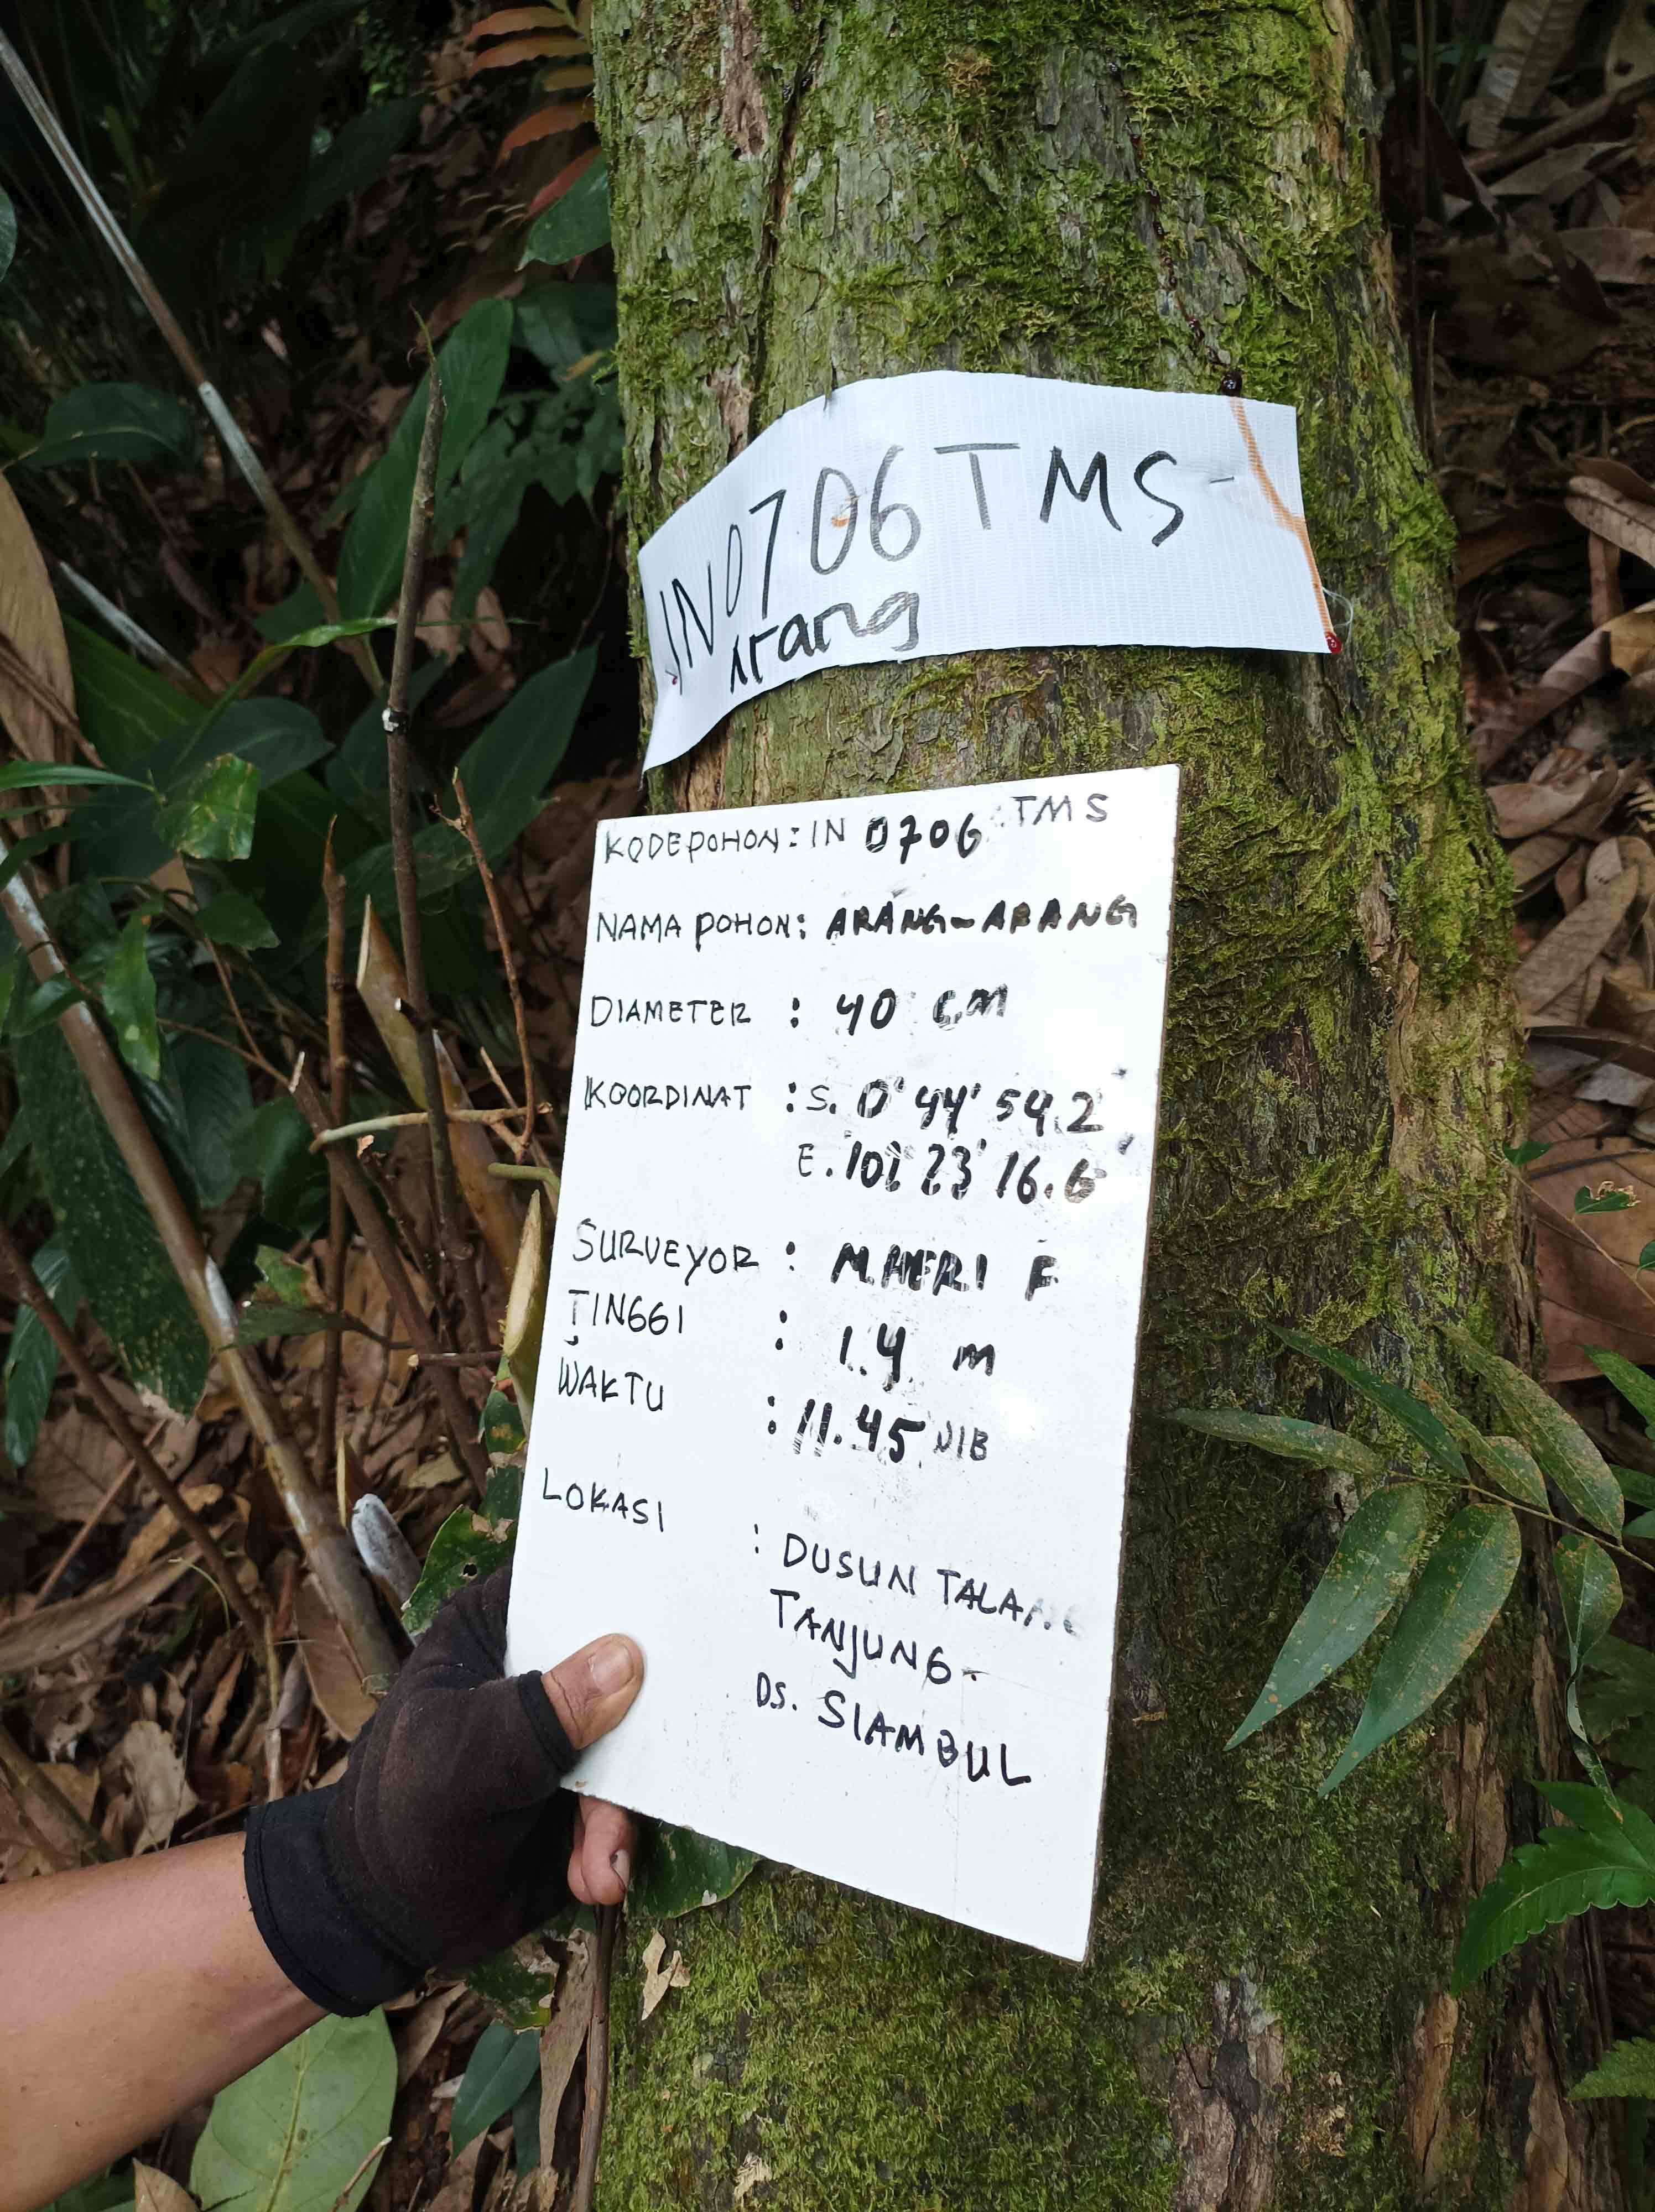 IN0706TMS
Arang
KODEPOHON: IN 0706 TMS
NAMA POHON: ARANG-ARANG
DIAMETER : 40 CM
KOORDINAT : S. 0° 44' 54.2"
E. 102° 23' 16.6"
SURVEYOR : M.HERI F
TINGGI : 1.4 m
WAKTU : 11.45 WIB
LOKASI : DUSUN TALANG
TANJUNG-
DS. SIAMBUL